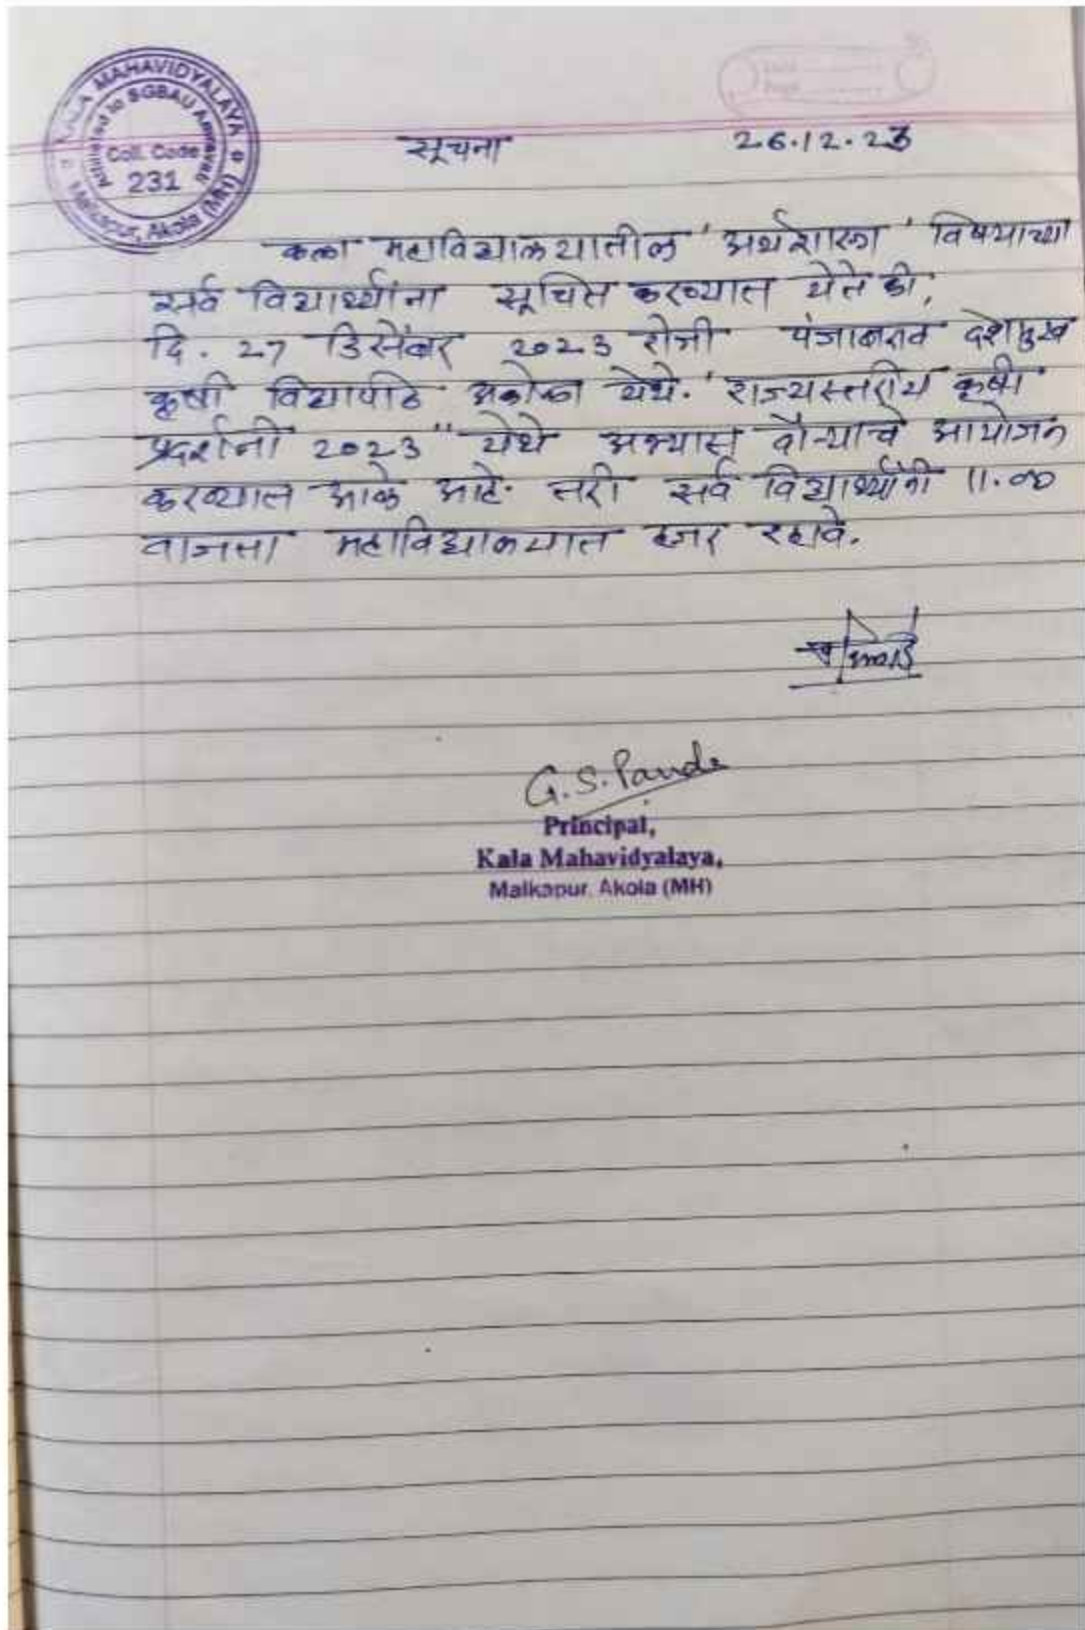 KALA MAHAVIDYALAYA
Affiliated to SGBAU Amravati
Coll. Code
231
Malkapur, Akola (MH)
सूचना 26.12.23
कला महाविद्यालयातील 'अर्थशास्त्र' विषयाच्या
सर्व विद्यार्थ्यांना सूचित करण्यात येते की,
दि. 27 डिसेंबर 2023 रोजी पंजाबराव देशमुख
कृषी विद्यापीठ अकोला येथे. "राज्यस्तरीय कृषी
प्रदर्शनी 2023" येथे अभ्यास दौऱ्याचे आयोजन
करण्यात आले आहे. तरी सर्व विद्यार्थ्यांनी 11.00
वाजता महाविद्यालयात हजर रहावे.
G.S. Pande
Principal,
Kala Mahavidyalaya,
Malkapur, Akola (MH)